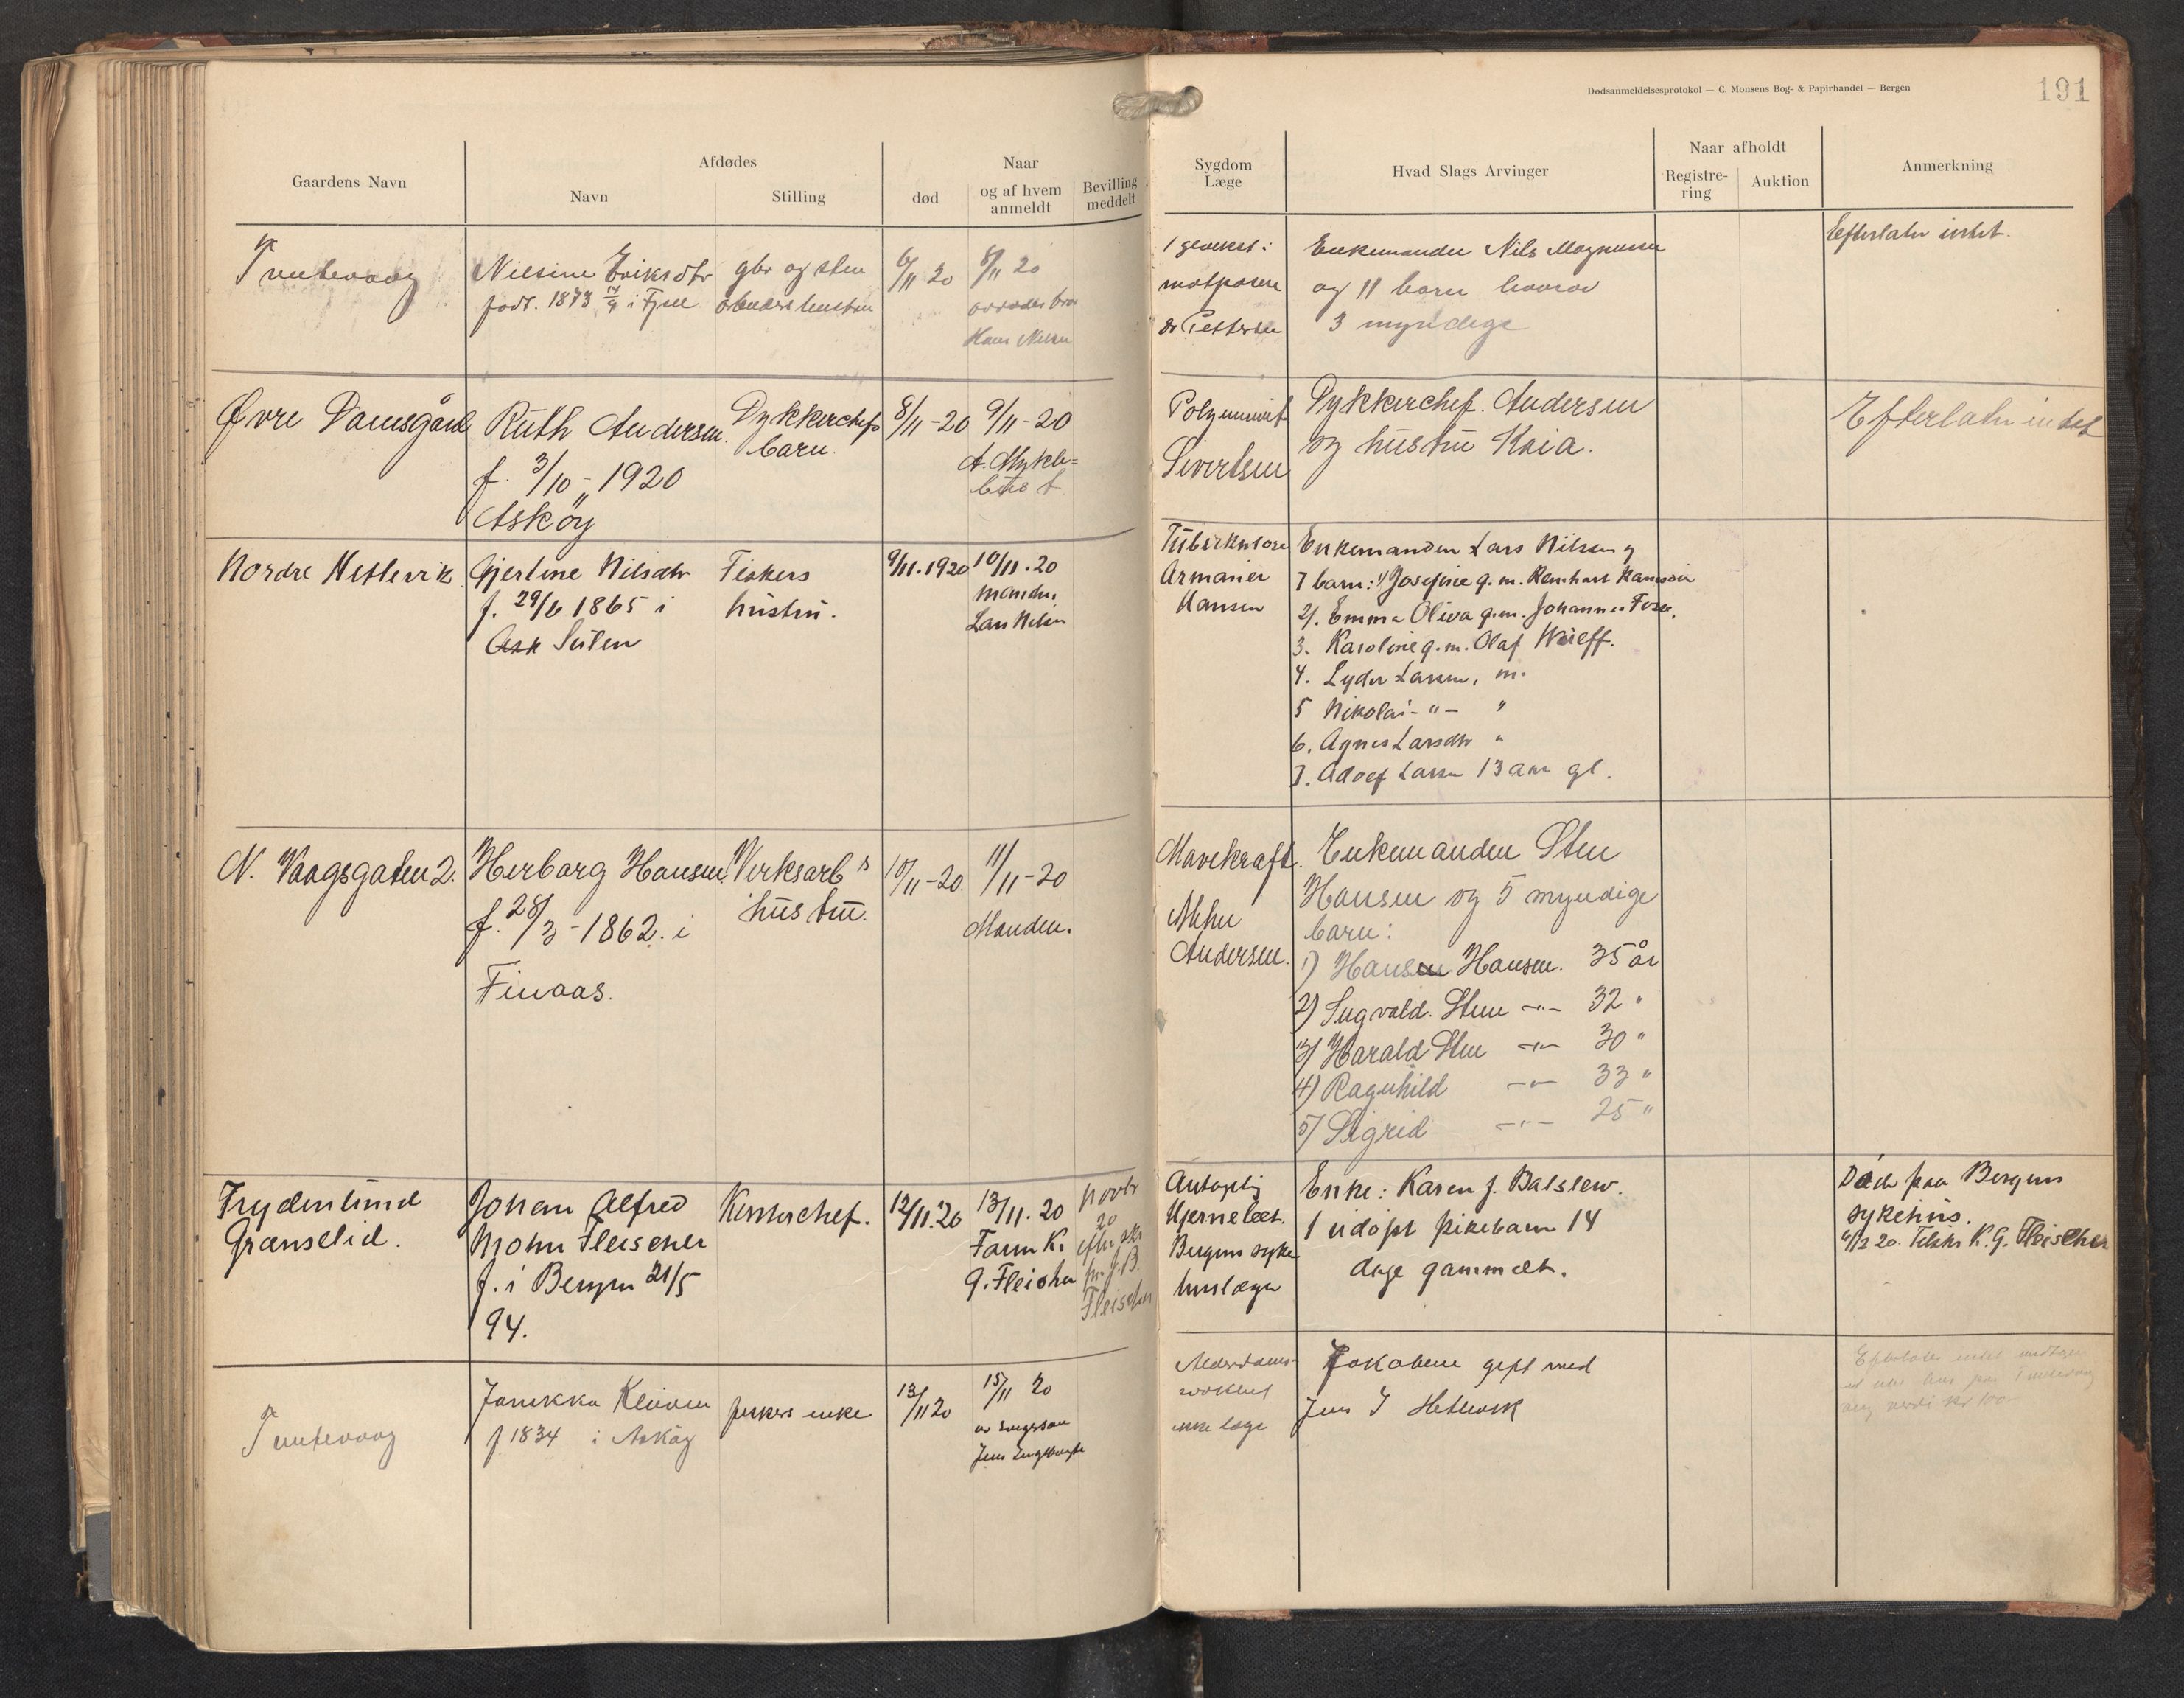 Dødsanmeldelsesprotokol — C. Monsens Bog- & Papirhandel — Bergen
191
Gaardens Navn
Afdødes
Navn
Stilling
Naar
død
og af hvem anmeldt
Bevilling meddelt
Sygdom
Læge
Hvad Slags Arvinger
Naar afholdt
Registrering
Auktion
Anmerkning
Nilsine Eriksdtr
født. 1873 14/9 i
gbr og sten
6/11 20
8/11 20
Hans Nilsen
dr Pettersen
Enkemanden Nils Magnussen
og 11 barn hvorav
3 myndige
Efterlater intet.
Øvre Damsgård
Ruth Andersen.
f. 3/10 - 1920
Askøy
Dykkerchefs
barn.
8/11-20
9/11-20
A. Mykle=
bust
Sivertsen
Dykkerchef. Andersen
og hustru Kaia.
Efterlater intet
Nordre Hetlevik
Gjertine Nilsdtr
f. 29/6 1865 i
Ask Sulen
Fiskers
hustru.
9/11.1920
10/11.20
manden
Lars Nilsen
Tuberkulose
Armauer
Hansen
Enkemanden Lars Nilsen og
7 barn: 1) Josefine g. m. Reinhart
2). Emma Oliva g.m. Johannes
3. Karoline g. m. Olaf
4. Lyder Larsen, m.
5 Nikolai - " - "
6. Agnes Larsdtr "
7. Adolf Larsen 13 aar gl.
N. Vaagsgaten 2.
Herborg Hansen.
f. 28/3 - 1862. i
Finaas.
Verksarb s
hustru.
10/11-20.
11/11-20
Manden.
Mavekræft.
Andersen.
Enkemanden Sten
Hansen og 5 myndige
barn:
1) Hansen Hansen. 35 år
2) Sigvald. Sten -"- 32 "
3) Harald Sten -"- 30 "
4) Ragnhild -"- 33 "
5) Sigrid -"- 25 "
Frydenlund
Grænselid.
Johan Alfred
Mohn Fleischer
f. i Bergen 21/5
94.
Kontorchef.
12/11.20
13/11.20
Farm K.
G. Fleischer
Fleischer
Bergens syke
huslæge
Enke: Karen J. Balslew.
1 udøpt pikebarn 14
dage gammelt.
Død paa Bergens
sykehus.
K. G. Fleischer
f 1834 i Askøy
fiskers enke
13/11 20
15/11 20
Alderdoms-
ikke læge
Jakobine gift med
Jens J Hetlevik